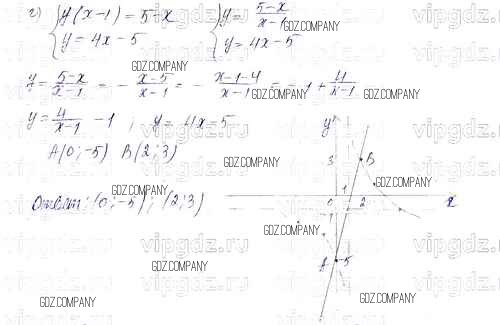 г) { y(x-1) = 5-x   { y = 5-x / x-1
y = 4x-5   y = 4x-5
y = 5-x / x-1 = - x-5 / x-1 = - x-1-4 / x-1 = -1 + 4 / x-1
y = 4 / x-1 - 1 ; y = 4x-5
A(0;-5) B(2;3)
Ответ: (0;-5); (2;3)
y
3 B
1
0 2 x
-1
A -5
GDZ.COMPANY
GDZ.COMPANY
GDZ.COMPANY
GDZ.COMPANY
GDZ.COMPANY
GDZ.COMPANY
GDZ.COMPANY
GDZ.COMPANY
GDZ.COMPANY
GDZ.COMPANY
GDZ.COMPANY
vipgdz.ru
vipgdz.ru
vipgdz.ru
vipgdz.ru
vipgdz.ru
vipgdz.ru